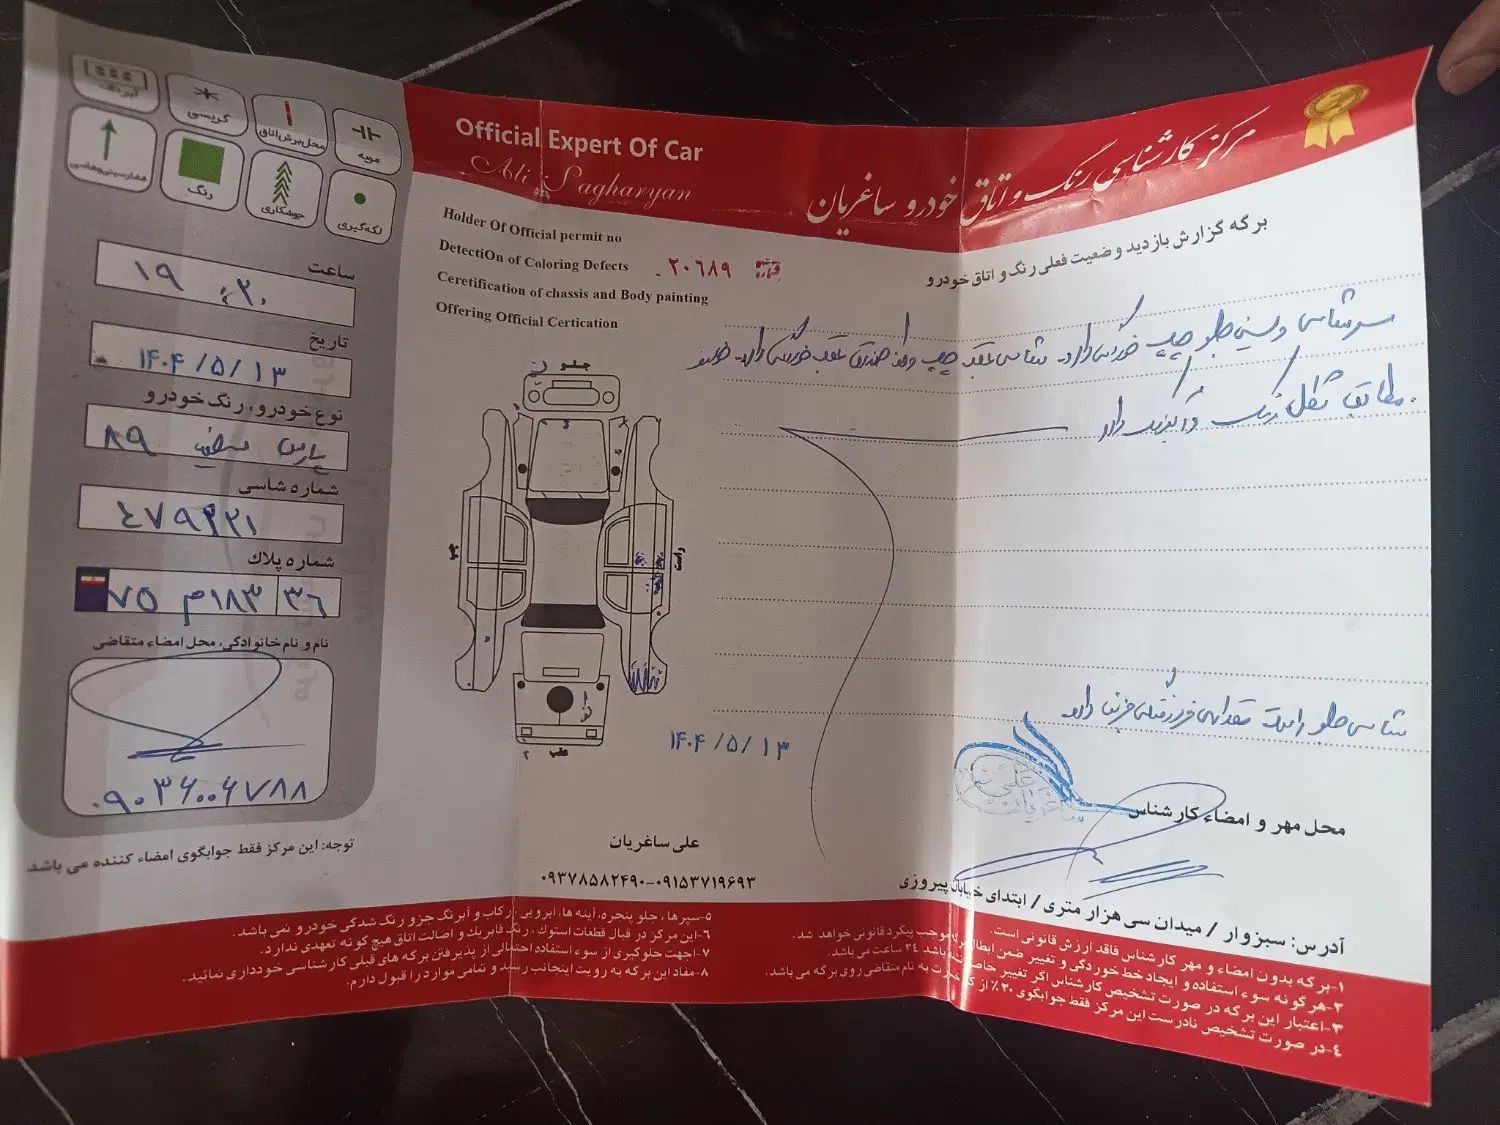 مرکز کارشناسی رنگ و اتاق خودرو ساغریان
Official Expert Of Car
Ali Sagharyan
برگه گزارش بازدید وضعیت فعلی رنگ و اتاق خودرو
Holder Of Official permit no
DetectiOn of Coloring Defects
Ceretification of chassis and Body painting
Offering Official Certication
۲۰۶۸۹
سرشاسی و سینی جلو چپ خوردگی دارد. شاسی عقب چپ و
مطابق شکل رنگ و آبرنگ دارد
شاسی جلو راست
۱۴۰۴/۵/۱۳
محل مهر و امضاء کارشناس
جلو
چپ
راست
عقب
علی ساغریان
۰۹۳۷۸۵۸۲۴۹۰-۰۹۱۵۳۷۱۹۶۹۳
آدرس: سبزوار / میدان سی هزار متری / ابتدای خیابان پیروزی
مویه
محل برش اتاق
کریسی
آبرنگ
لکه گیری
جوشکاری
رنگ
ساعت
۱۹:۲۰
تاریخ
۱۴۰۴/۵/۱۳
نوع خودرو، رنگ خودرو
پارس سفید ۸۹
شماره شاسی
شماره پلاک
۷۵ م ۱۸۳ ۳۶
نام و نام خانوادگی، محل امضاء متقاضی
۰۹۰۳۶۰۰۶۷۸۸
توجه: این مرکز فقط جوابگوی امضاء کننده می باشد
۱-برگه بدون امضاء و مهر کارشناس فاقد ارزش قانونی است.
۲-هرگونه سوء استفاده و ایجاد خط خوردگی و تغییر ضمن ابطال برگه موجب پیگرد قانونی خواهد شد.
۳-اعتبار این برگه در صورت تشخیص کارشناس اگر تغییر حاصل نشده باشد ۲۴ ساعت می باشد.
۴-در صورت تشخیص نادرست این مرکز فقط جوابگوی ۳۰٪ از کل خسارت به نام متقاضی روی برگه می باشد.
۵-سپرها، جلو پنجره، آینه ها، ابرویی، رکاب و آبرنگ جزو رنگ شدگی خودرو نمی باشد.
۶-این مرکز در قبال قطعات استوک، رنگ فابریک و اصالت اتاق هیچ گونه تعهدی ندارد.
۷-جهت جلوگیری از سوء استفاده احتمالی از پذیرفتن برگه های قبلی کارشناسی خودداری نمائید.
۸-مفاد این برگه به رویت اینجانب رسید و تمامی موارد را قبول دارم.